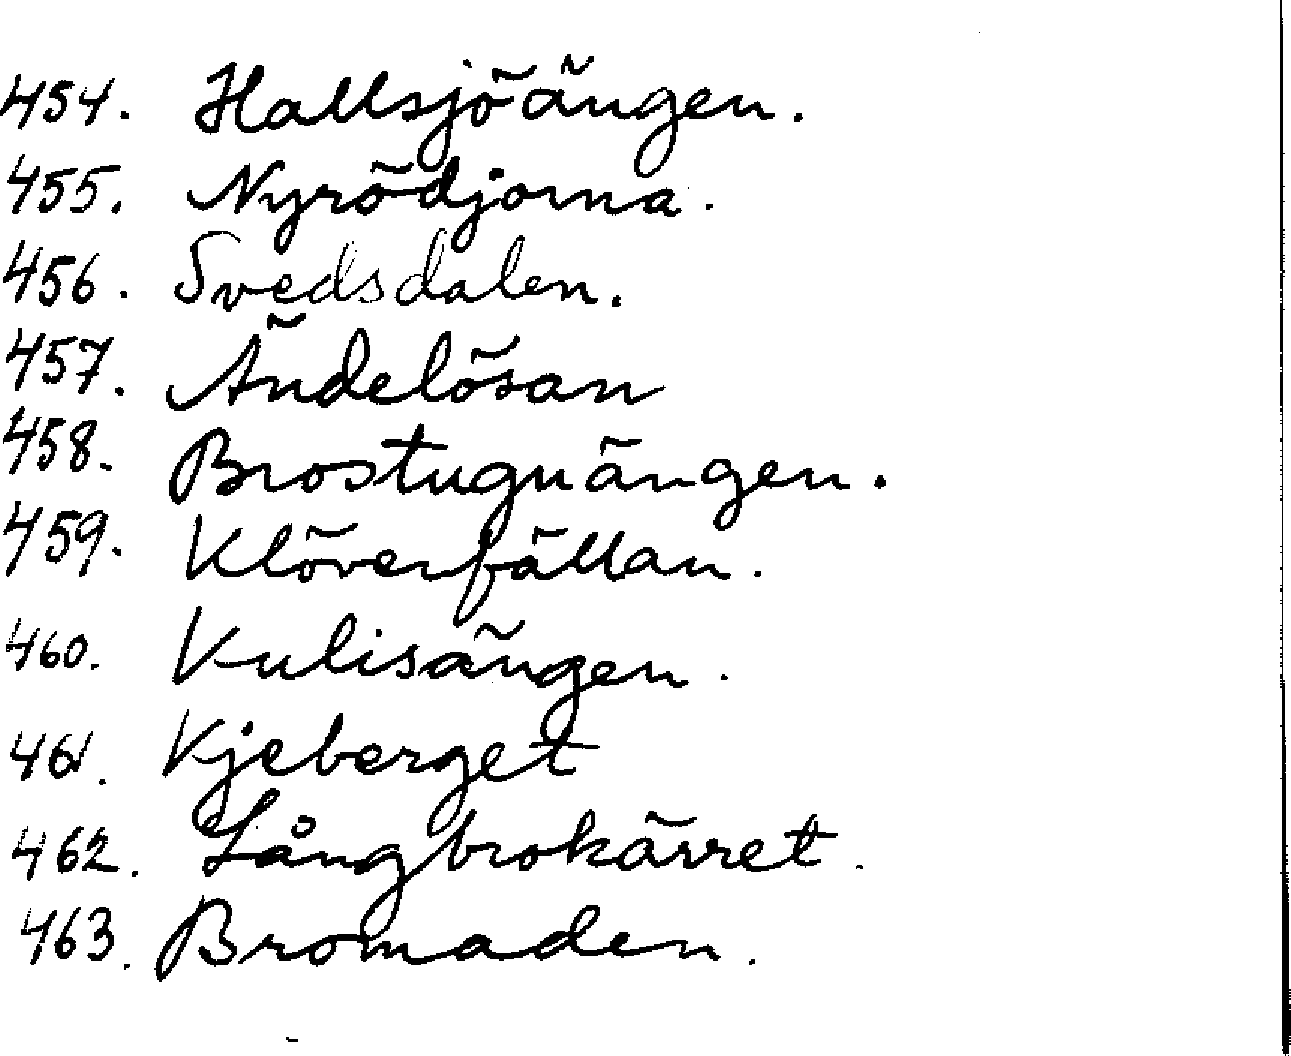 454. Hallsjöängen.
455. Nyrödjorna.
456. Svedsdalen.
457. Ändelösan
458. Brostugnängen.
459. Klöverfällan.
460. Kulisängen.
461. Kjeberget
462. Långbrokärret.
463. Bromaden.